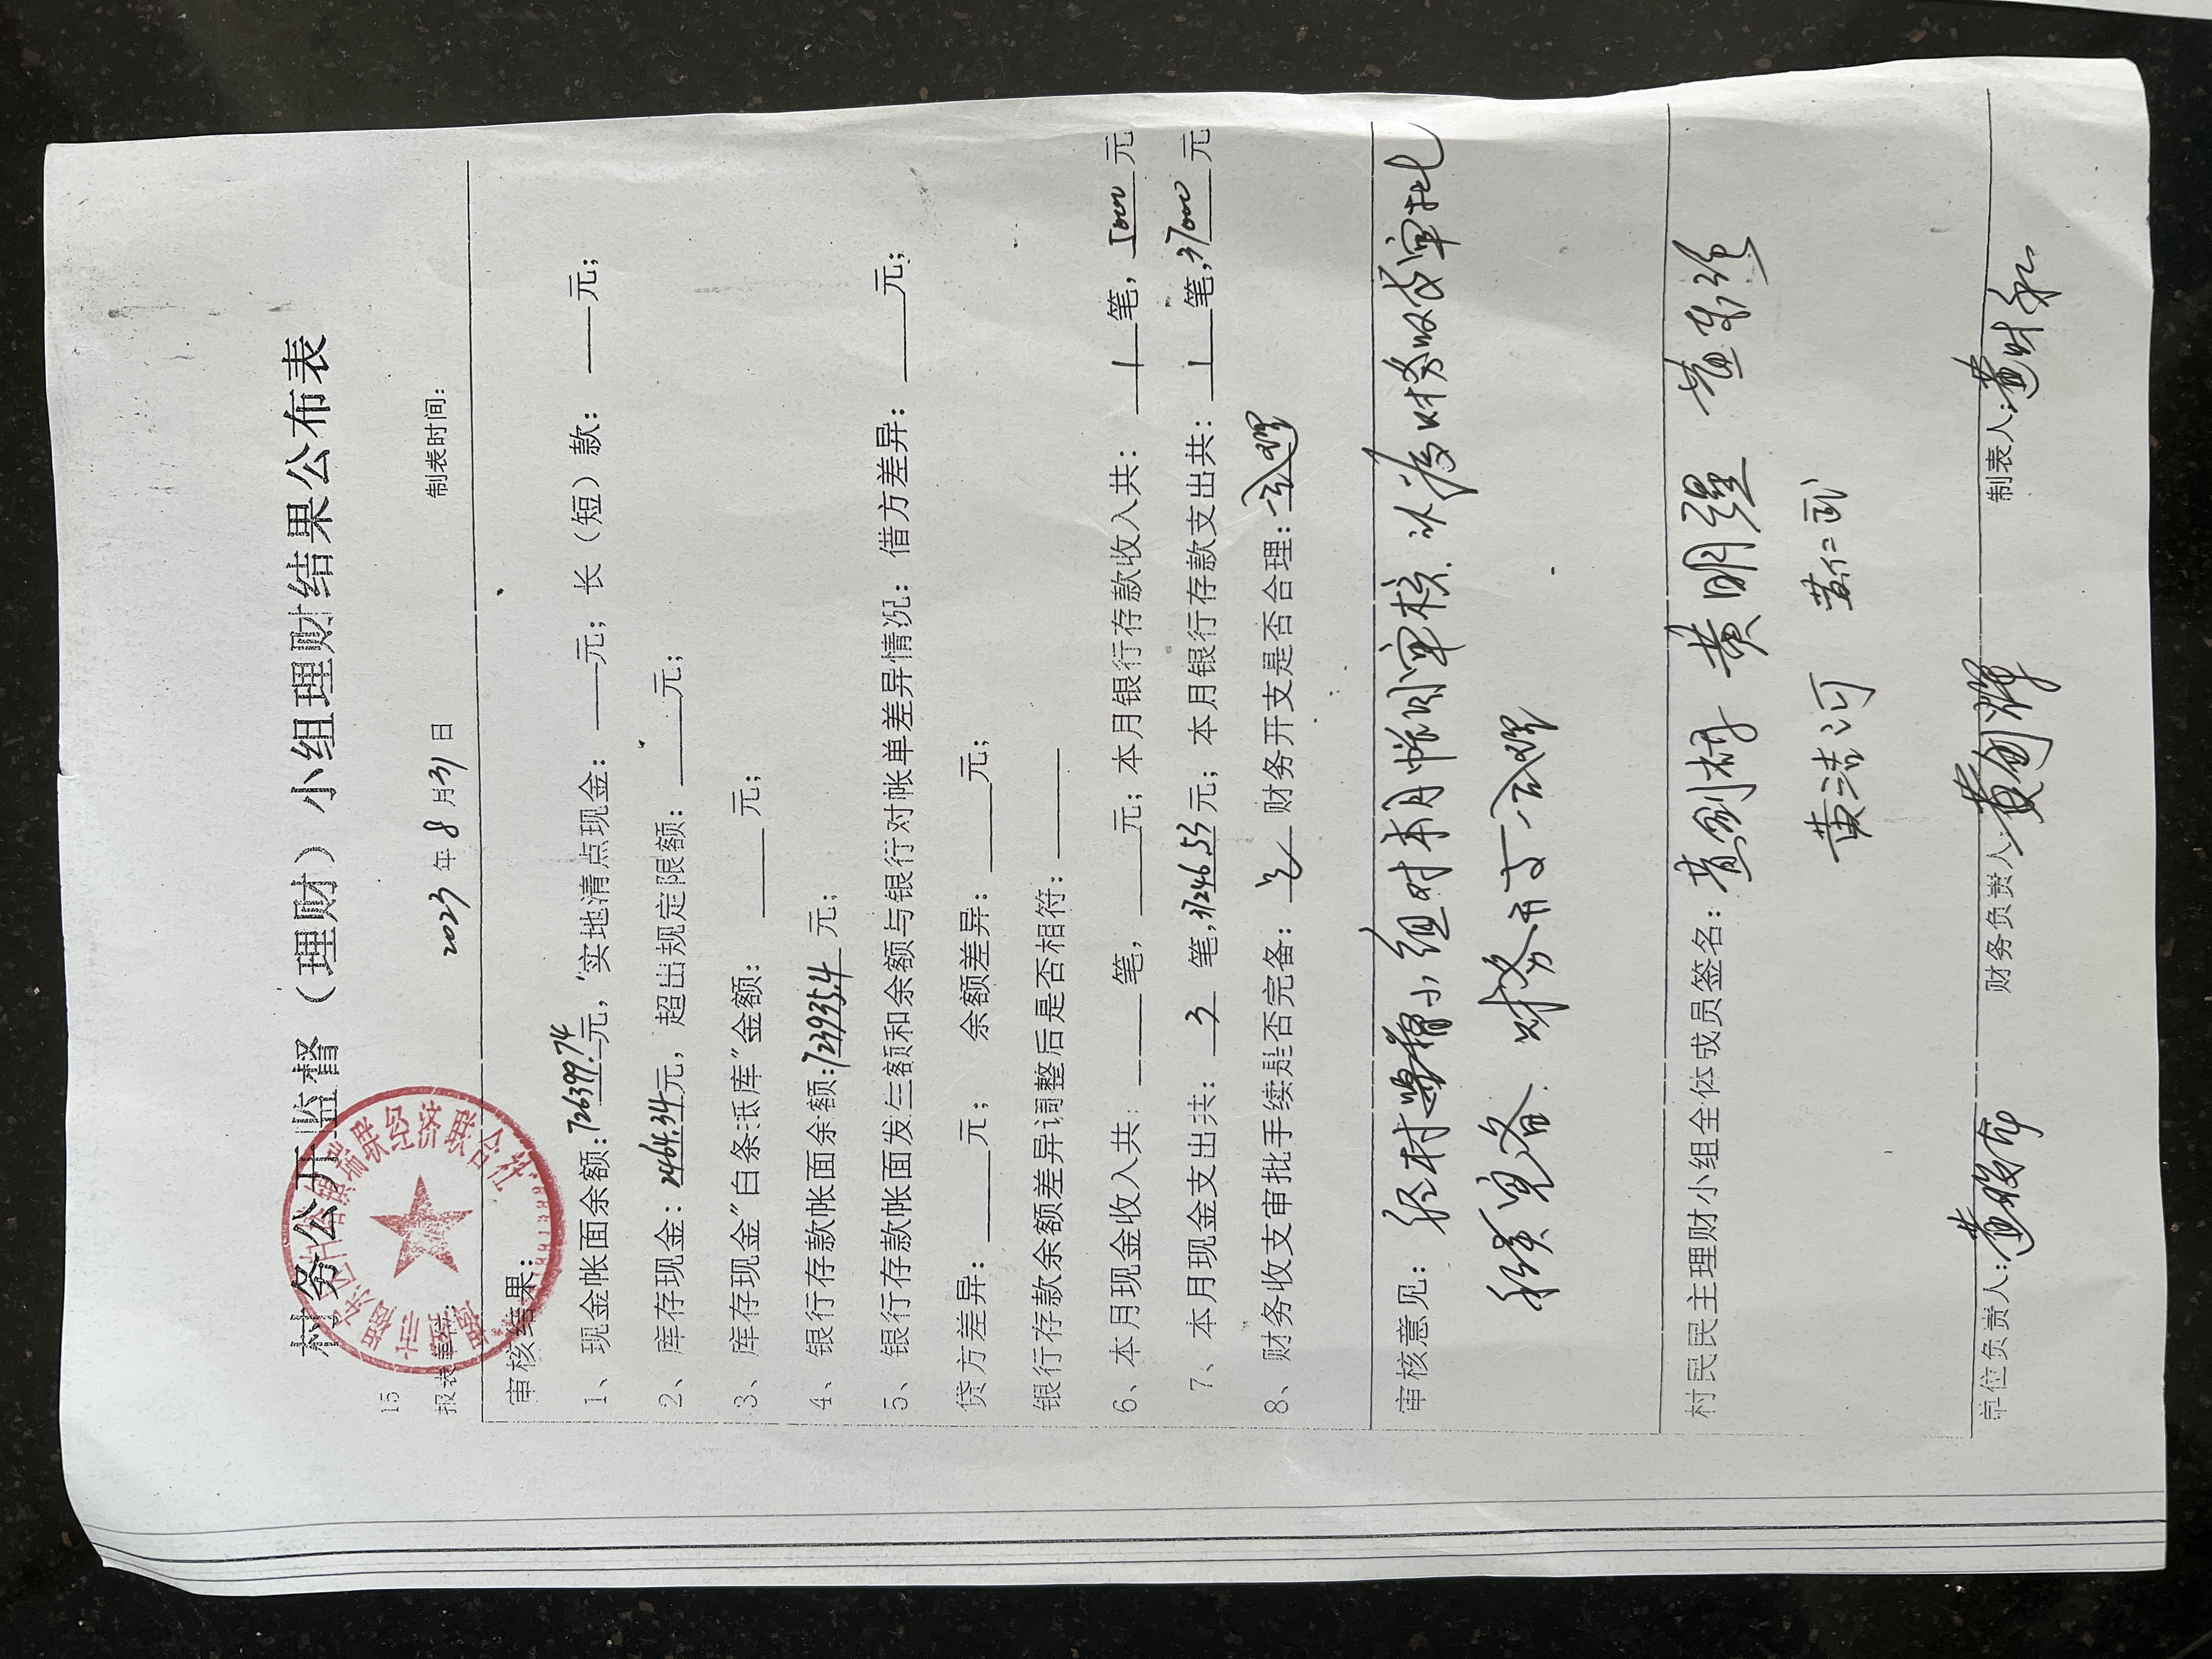 村务公开监督（理财）小组理财结果公布表
15
报表单位： 2023 年 8 月 31 日 制表时间：
审核结果：
1、现金帐面余额：726399.74元，实地清点现金：元；长（短）款：元；
2、库存现金：2464.34元，超出规定限额：元；
3、库存现金"白条抵库"金额：元；
4、银行存款帐面余额：723935.4元；
5、银行存款帐面发生额和余额与银行对帐单差异情况：借方差异：元；
贷方差异：元；余额差异：元；
银行存款余额差异调整后是否相符：
6、本月现金收入共：笔，元；本月银行存款收入共：1笔，5000元
7、本月现金支出共：3笔，31246.53元；本月银行存款支出共：1笔，37000元
8、财务收支审批手续是否完备：是 财务开支是否合理：合理
审核意见：经村监督小组对本月帐目审核，认为财务收支审批
手续完备，财务开支合理
村民民主理财小组全体成员签名：黄明强
黄法河 黄仁武
单位负责人： 财务负责人： 制表人：